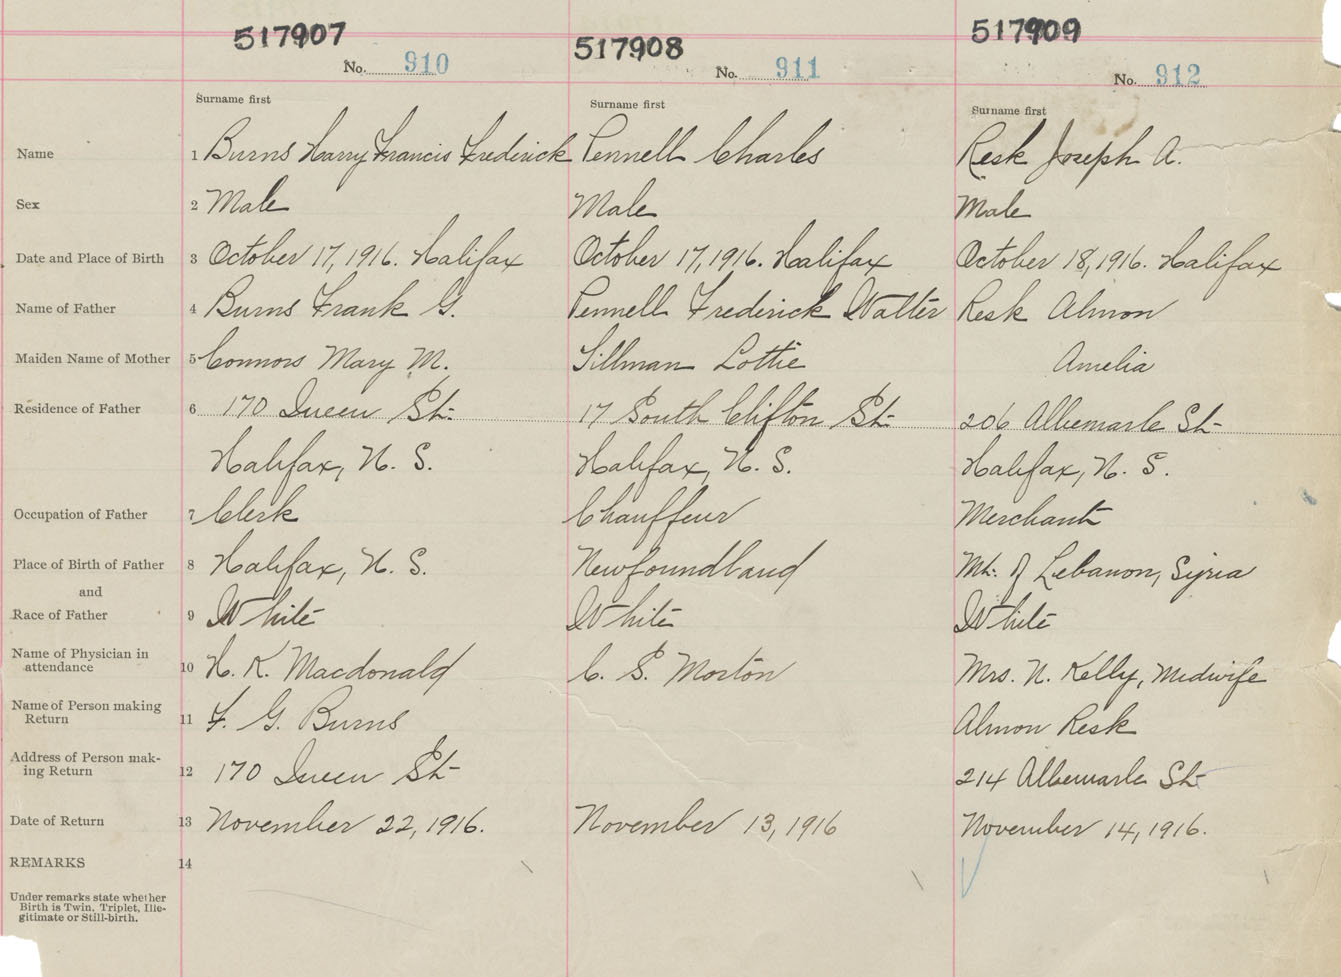 517907 517908 517909
No. 910 No. 911 No. 912
Surname first Surname first Surname first
Name 1 Burns Harry Francis Frederick Pennell Charles Resk Joseph A.
Sex 2 Male Male Male
Date and Place of Birth 3 October 17, 1916. Halifax October 17, 1916. Halifax October 18, 1916. Halifax
Name of Father 4 Burns Frank G. Pennell Frederick Walter Resk Almon
Maiden Name of Mother 5 Connors Mary M. Sillman Lottie Amelia
Residence of Father 6 170 Queen St. 17 South Clifton St. 206 Albemarle St.
Halifax, N. S. Halifax, N. S. Halifax, N. S.
Occupation of Father 7 Clerk Chauffeur Merchant
Place of Birth of Father 8 Halifax, N. S. Newfoundland Mt. of Lebanon, Syria
and
Race of Father 9 White White White
Name of Physician in
attendance 10 H. K. Macdonald C. S. Morton Mrs. N. Kelly, Midwife
Name of Person making
Return 11 F. G. Burns Almon Resk
Address of Person mak-
ing Return 12 170 Queen St. 214 Albemarle St.
Date of Return 13 November 22, 1916. November 13, 1916 November 14, 1916.
REMARKS 14
Under remarks state whether
Birth is Twin, Triplet, Ille-
gitimate or Still-birth.